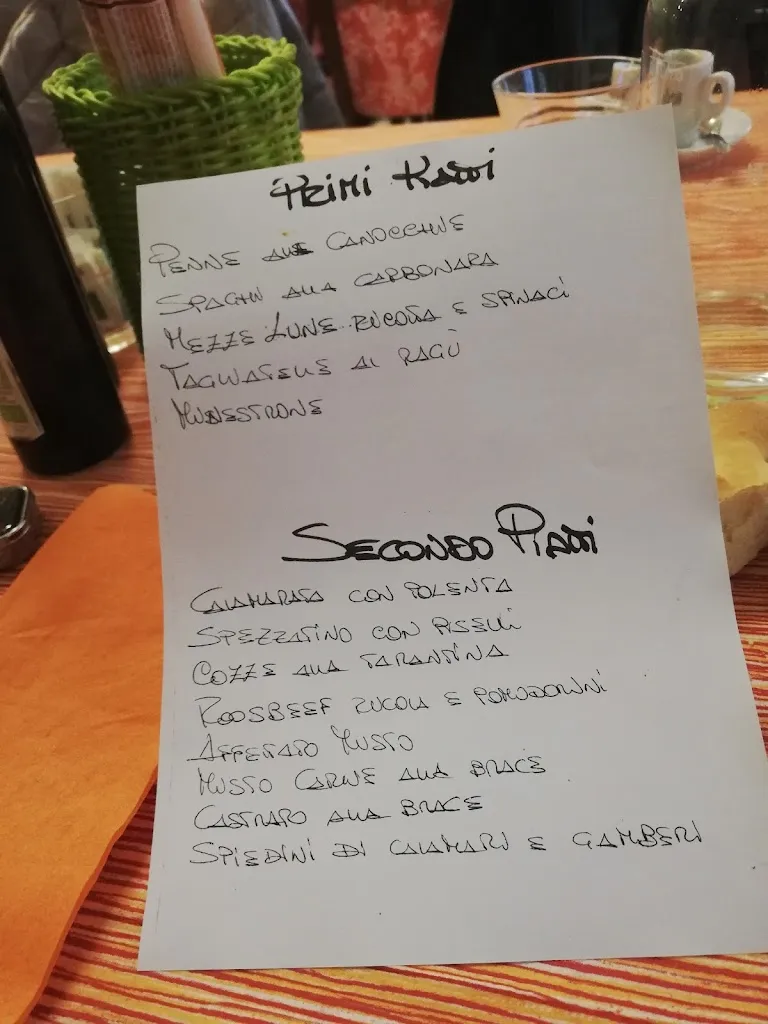 PRIMI PIATTI
PENNE ALLE CANOCCHIE
SPAGHI ALLA CARBONARA
MEZZE LUNE RICOTTA E SPINACI
TAGLIATELLE AL RAGÙ
MINESTRONE
SECONDO PIATTI
CALAMARATA CON POLENTA
SPEZZATINO CON PISELLI
COZZE ALLA TARANTINA
ROOSBEEF RUCOLA E POMODORINI
AFFETTATO MISTO
MISTO CARNE ALLA BRACE
CASTRATO ALLA BRACE
SPIEDINI DI CALAMARI E GAMBERI